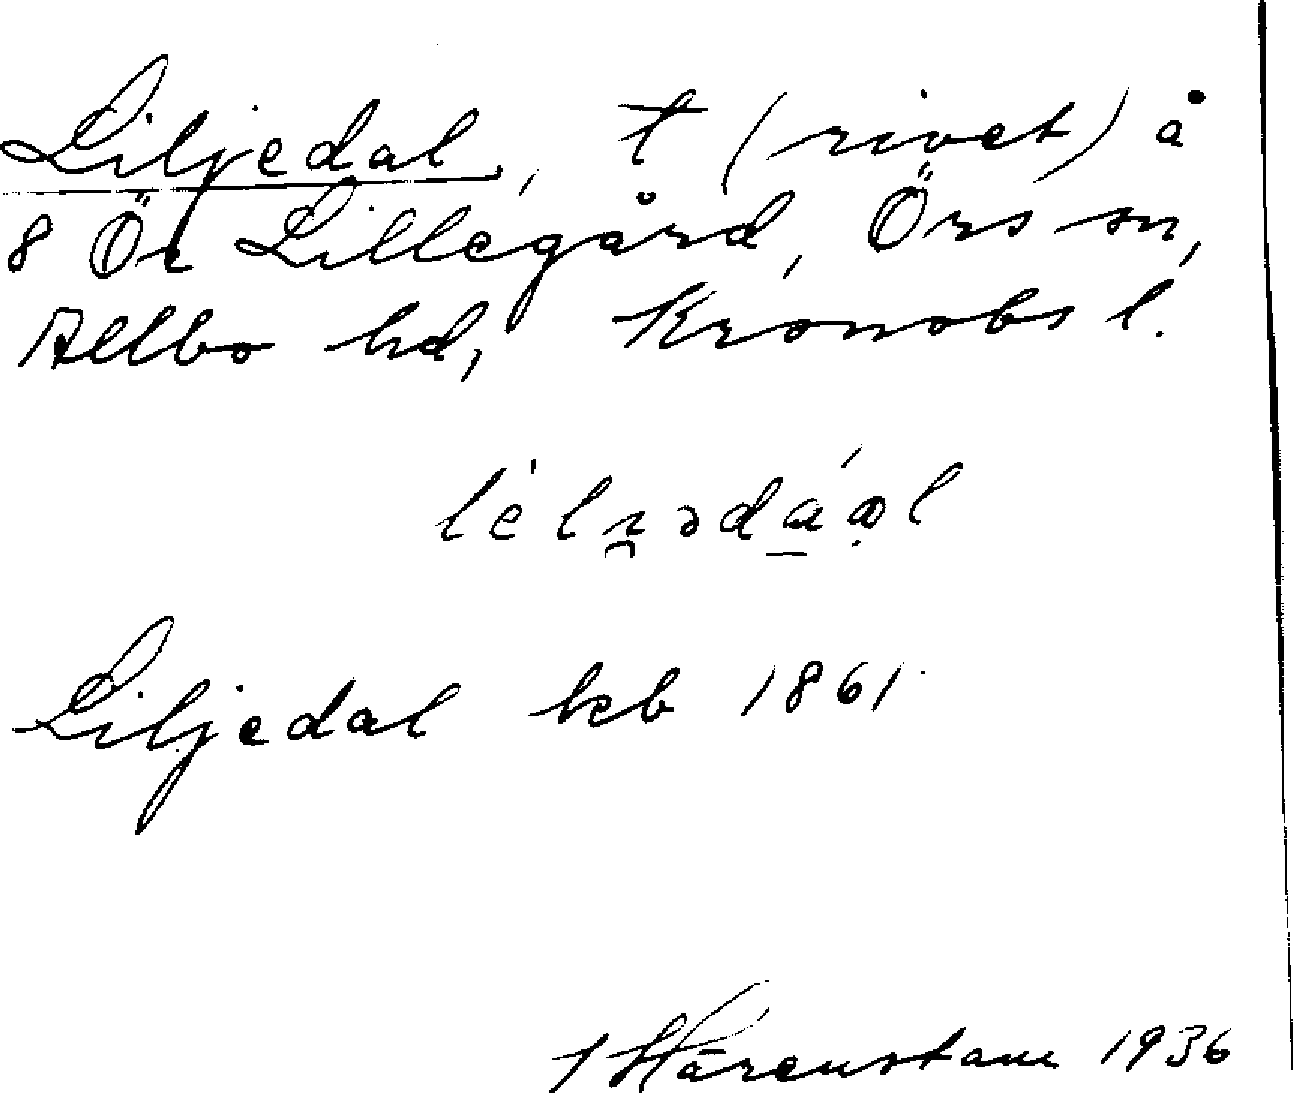 Liljedal, t (rivet) å
8 Ör Lillegård, Örs sn,
Allbo hd, Kronobs l.
Liljedal kb 1861
Härenstam 1936